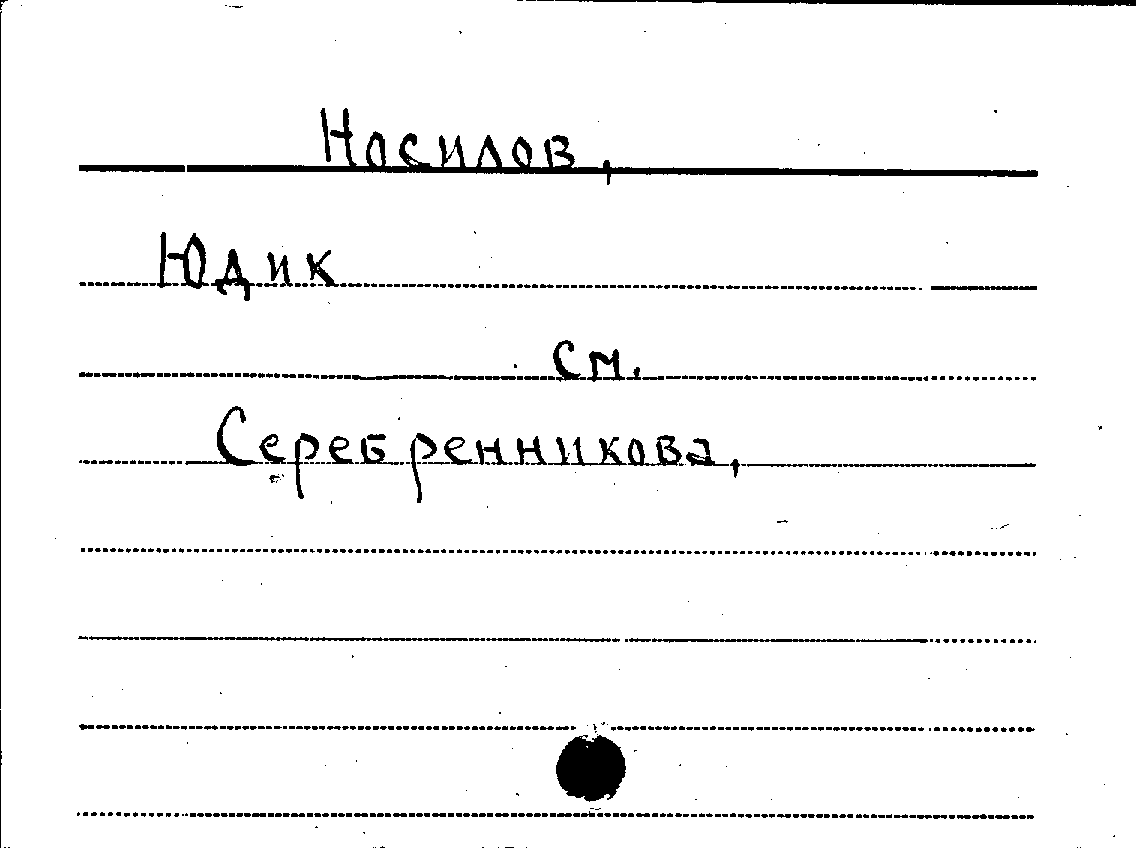 Носилов,
Юдик
см.
Серебренникова,